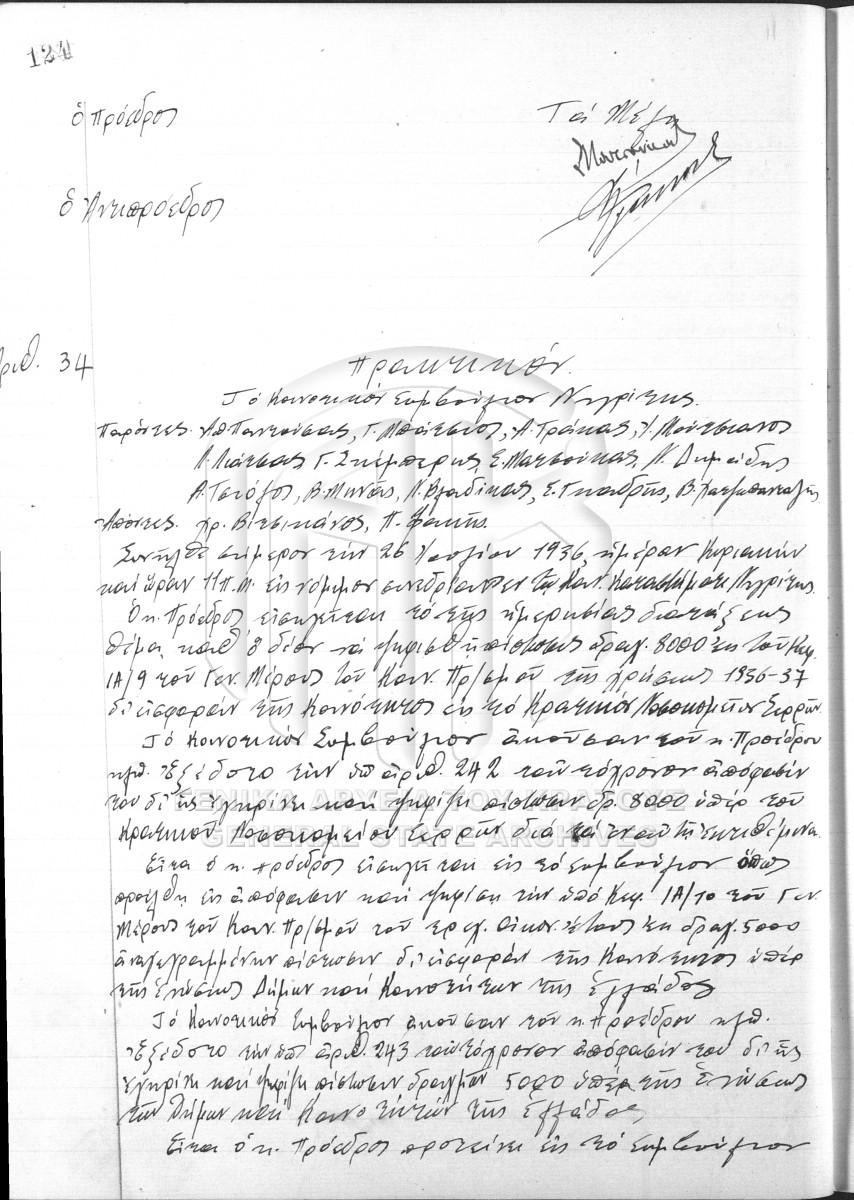 124
ὁ Πρόεδρος
Τὰ Μέλη
ὁ Ἀντιπρόεδρος
Ἀριθ. 34
Πρακτικόν.
Τό Κοινοτικόν Συμβούλιον Νιγρίτης.
Παρόντες. Ἀθ Παντούσας, Γ. Μπάτσιος, Ἀ. Τράκας, Χ. Μούτσιανος
Λ. Λιάτσας Γ. Σκέμπερης, Ε. Ματσούκας, Ν. Δημάδης
Α. Τσιόγος, Β. Μηνᾶς, Ν. Βλαδίκας, Σ. Γκαδρῆς, Β. Χατζηπανταζῆς
Ἀπόντες. Χρ. Βιτσικάνος, Π. Φακῆς.
Συνῆλθε σήμερον τὴν 26 Ἰουλίου 1936, ἡμέραν Κυριακὴν
καὶ ὥραν 11 π.μ. εἰς νόμιμον συνεδρίαν ἐν τῷ Κοιν. Καταστήματι Νιγρίτης.
Ὁ κ. Πρόεδρος εἰσηγεῖται τὸ τῆς ἡμερησίας διατάξεως
θέμα, καθ' ὅ δέον νὰ ψηφισθῇ πίστωσις δραχ. 8000 ἐκ τοῦ Κεφ.
ΙΑ/9 τοῦ Γεν. Μέρους τοῦ Κοιν. Πρ/σμοῦ τῆς χρήσεως 1936-37
δι' εἰσφορὰν τῆς Κοινότητος εἰς τὸ Κρατικὸν Νοσοκομεῖον Σερρῶν.
Τό Κοινοτικόν Συμβούλιον ἀκοῦσαν τοῦ κ. Προέδρου
κλπ. Ἐξέδοτο τὴν ὑπ' ἀριθ. 242 ταὐτόχρονον ἀπόφασίν
του δι' ἧς ἐγκρίνει καὶ ψηφίζει πίστωσιν δρ. 8000 ὑπὲρ τοῦ
Κρατικοῦ Νοσοκομείου Σερρῶν διὰ τὰ ἐν αὐτῇ ἐκτιθέμενα.
Εἶτα ὁ κ. Πρόεδρος εἰσηγεῖται εἰς τὸ Συμβούλιον ὅπως
προέλθῃ εἰς ἀπόφασιν καὶ ψηφίσῃ τὴν ὑπὸ Κεφ. ΙΑ/10 τοῦ Γεν.
Μέρους τοῦ Κοιν. Πρ/σμοῦ τοῦ τρεχ. Οἰκον. ἔτους ἐκ δραχ. 5000
ἀναγεγραμμένην πίστωσιν δι' εἰσφορὰν τῆς Κοινότητος ὑπὲρ
τῆς Ἑνώσεως Δήμων καὶ Κοινοτήτων τῆς Ἑλλάδος
Τό Κοινοτικόν Συμβούλιον ἀκοῦσαν τοῦ κ. Προέδρου κλπ.
Ἐξέδοτο τὴν ὑπ' ἀριθ. 243 ταὐτόχρονον ἀπόφασίν του δι' ἧς
ἐγκρίνει καὶ ψηφίζει πίστωσιν δραχμῶν 5000 ὑπὲρ τῆς Ἑνώσεως
τῶν Δήμων καὶ Κοινοτήτων τῆς Ἑλλάδος
Εἶτα ὁ κ. Πρόεδρος προτείνει εἰς τὸ Συμβούλιον
ΓΕΝΙΚΑ ΑΡΧΕΙΑ ΤΟΥ ΚΡΑΤΟΥΣ
GENERAL STATE ARCHIVES